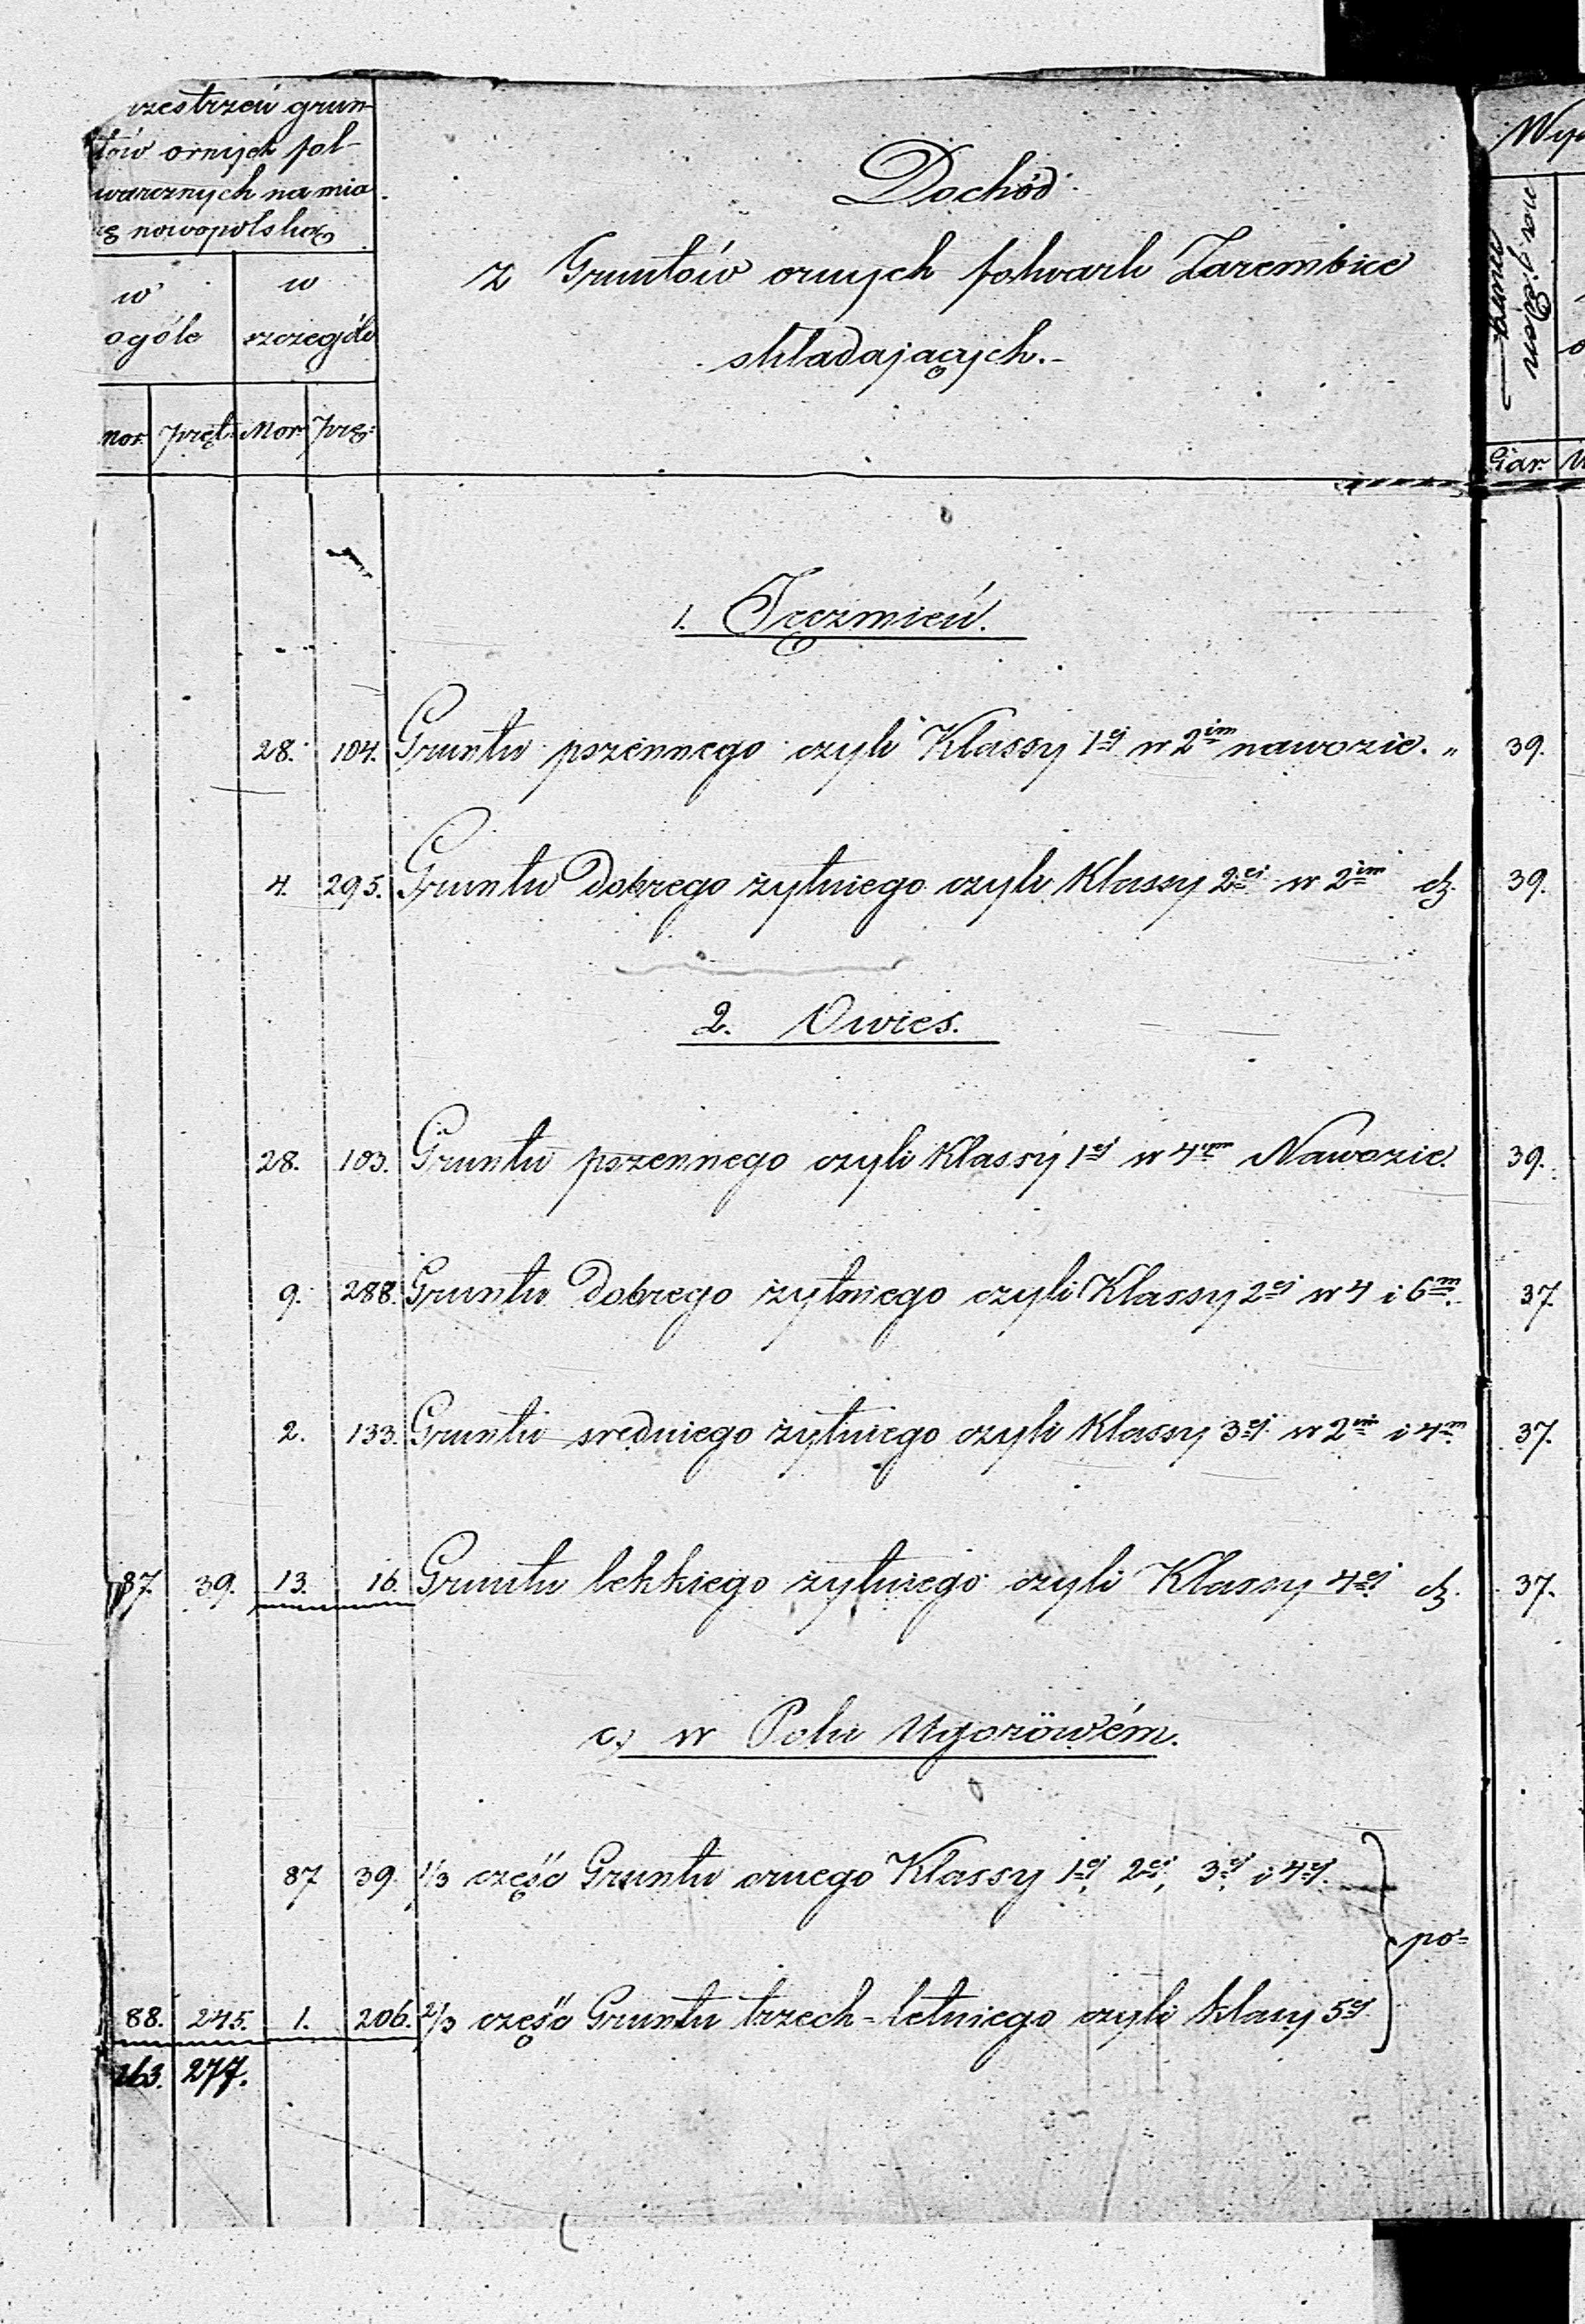 rzestrzeń grun-
tów ornych fol-
warcznych na mia
rę nowopolską
w ogóle
w szczególe
Mor. Pręt. Mor. Prę:
Dochód
z Gruntów ornych folwark Zarembice
składających.-
Wy
na jeden
Gar.
1. Jęczmień.
28. 104. Gruntu pszennego czyli Klassy 1ej w 2im nawozie. „ 39.
4. 295. Gruntu Dobrego żytniego czyli Klassy 2ei w 2im dt. 39.
2. Owies.
28. 103. Gruntu pszennego czyli Klassy 1ej w 4ym Nawozie. 39.
9. 288. Gruntu Dobrego żytniego czyli Klassy 2ej w 4 i 6m. 37.
2. 133. Gruntu sredniego żytniego czyli Klassy 3ej w 2im i 4m 37.
87. 39. 13. 16. Gruntu lekkiego żytniego czyli Klassy 4ej dt. 37.
c) w Polu Ugorówém.
87 39. 1/3 częśc Gruntu ornego Klassy 1ej, 2ei, 3ej i 4ej.
po=
88. 245. 1. 206. 2/3 częśc Gruntu trzech-letniego czyli klasy 5ej
263. 277.